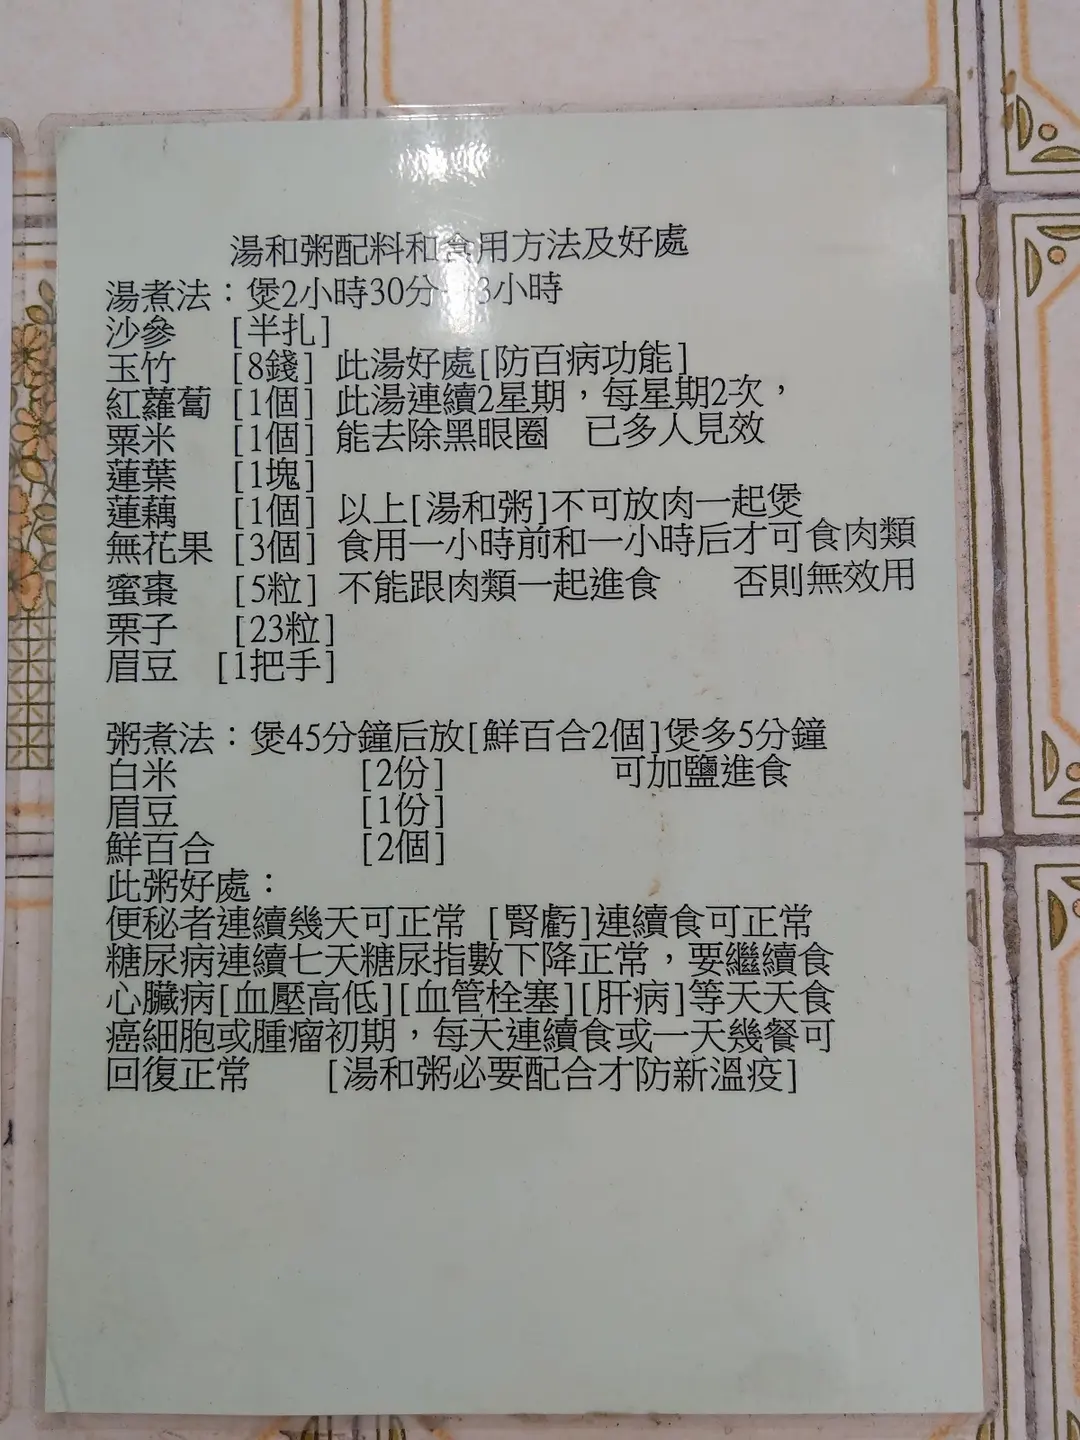 湯和粥配料和食用方法及好處
湯煮法：煲2小時30分 3小時
沙參 [半扎]
玉竹 [8錢] 此湯好處[防百病功能]
紅蘿蔔 [1個] 此湯連續2星期，每星期2次，
粟米 [1個] 能去除黑眼圈 已多人見效
蓮葉 [1塊]
蓮藕 [1個] 以上[湯和粥]不可放肉一起煲
無花果 [3個] 食用一小時前和一小時后才可食肉類
蜜棗 [5粒] 不能跟肉類一起進食 否則無效用
栗子 [23粒]
眉豆 [1把手]
粥煮法：煲45分鐘后放[鮮百合2個]煲多5分鐘
白米 [2份] 可加鹽進食
眉豆 [1份]
鮮百合 [2個]
此粥好處：
便秘者連續幾天可正常 [腎虧]連續食可正常
糖尿病連續七天糖尿指數下降正常，要繼續食
心臟病[血壓高低][血管栓塞][肝病]等天天食
癌細胞或腫瘤初期，每天連續食或一天幾餐可
回復正常 [湯和粥必要配合才防新溫疫]